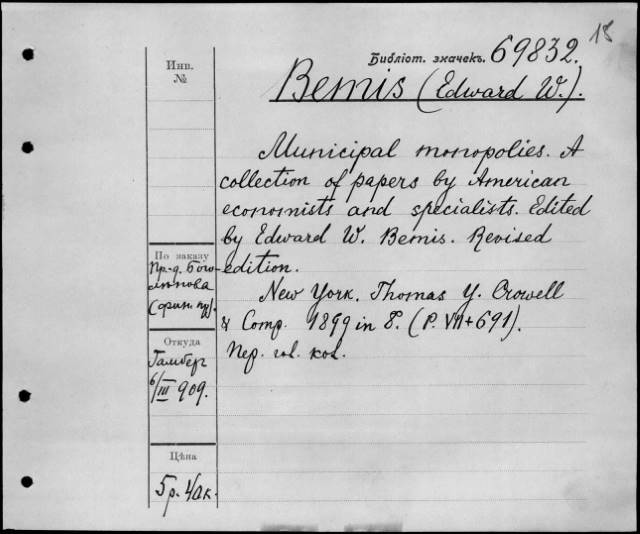 18
Библіот. значекъ. 69832.
Bemis (Edward W.).
Инв.
№
Municipal monopolies. A
collection of papers by American
economists and specialists. Edited
by Edward W. Bemis. Revised
edition.
New York. Thomas Y. Crowell
& Comp. 1899 in 8. (P. VII+691).
По заказу
Откуда
6/III 909.
Цѣна
5 р.